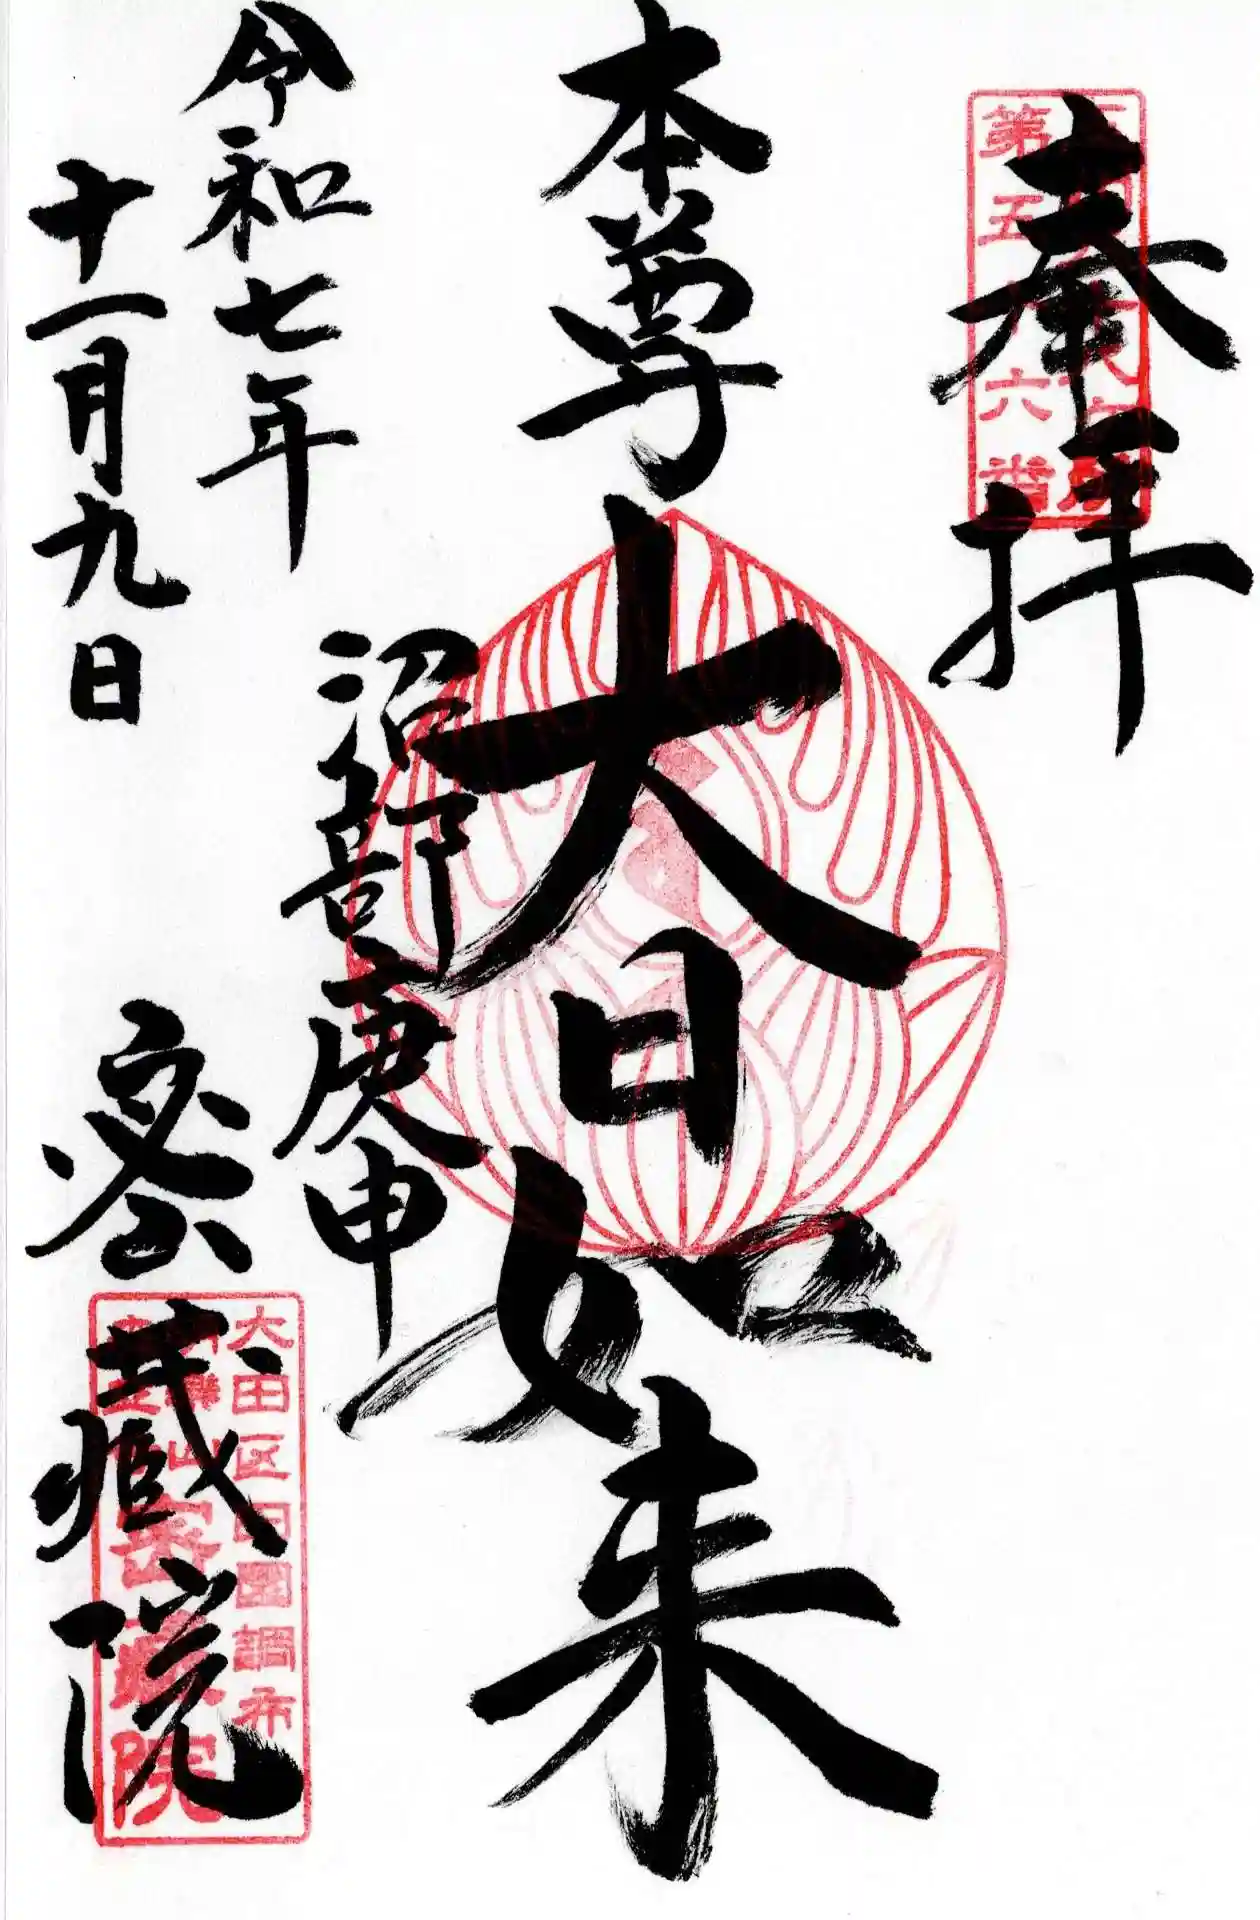 奉拝
本尊
大日如来
沼部庚申
令和七年
十一月九日
密蔵院
第五十六番
大田区田園調布
密蔵院